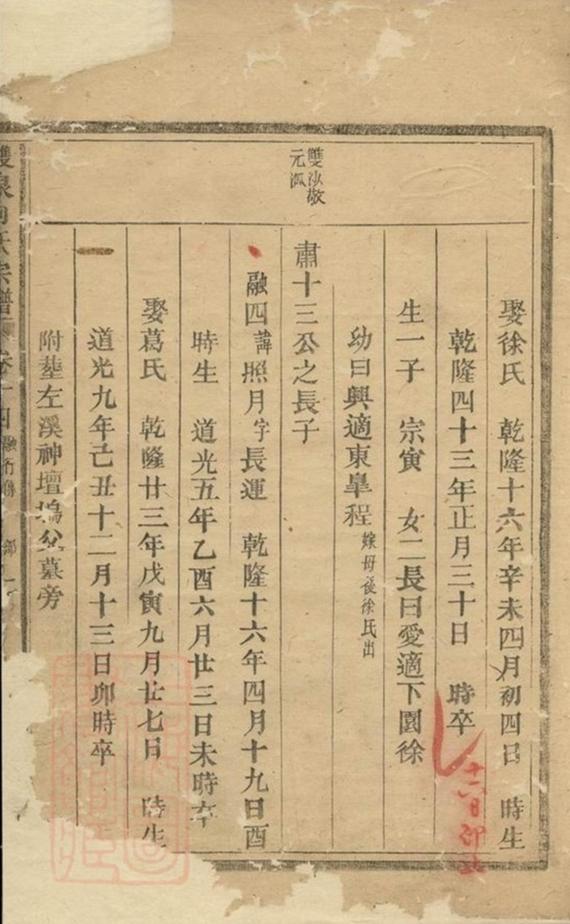 娶徐氏　乾隆十六年辛未四月初四日　時生
乾隆四十三年正月三十日　時卒
十六日卯
生一子　宗寅　女二長曰愛適下園徐
幼曰興適東阜程嫁母後徐氏出
雙派敬
元派
肅十三公之長子
融四諱照月字長運　乾隆十六年四月十九日酉
時生　道光五年乙酉六月廿三日未時卒
娶葛氏　乾隆廿三年戊寅九月廿七日　時生
道光九年己丑十二月十三日卯時卒
附塟左溪神壇塢父墓旁
雙泉 氏宗譜 卷十四